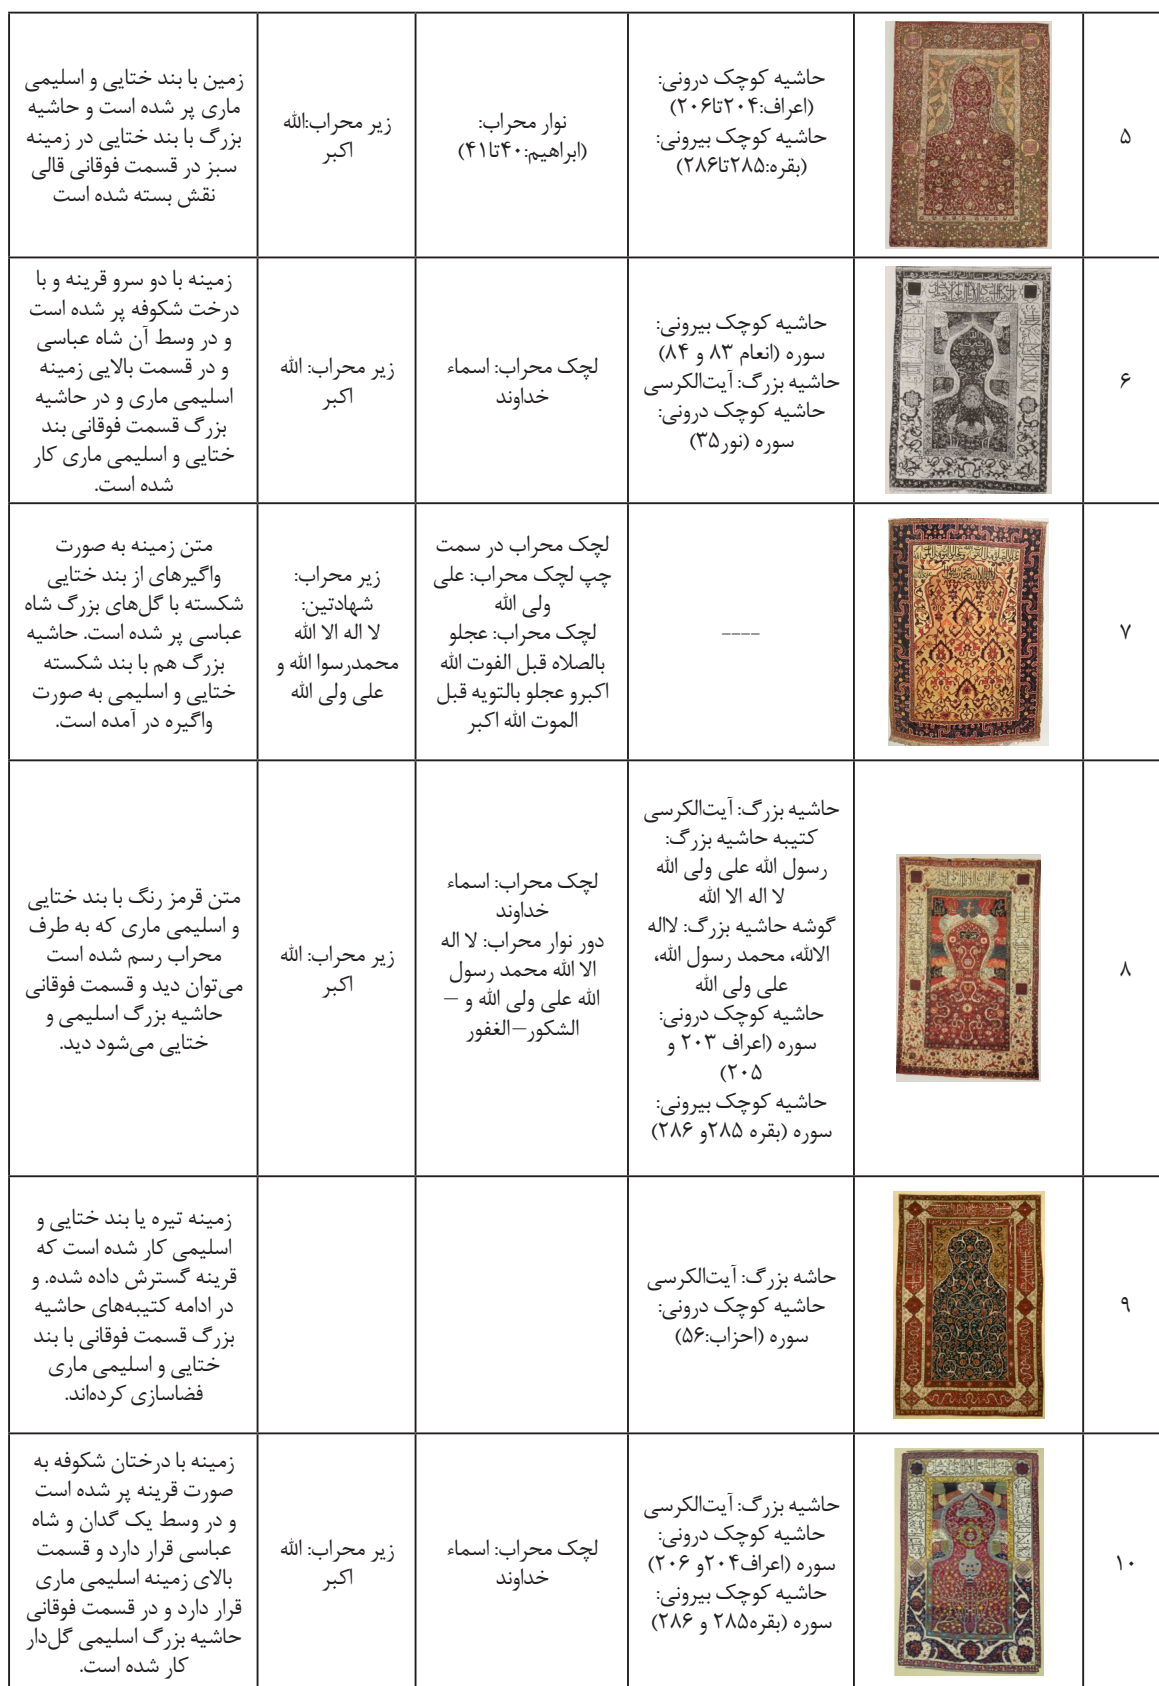 ۵
حاشیه کوچک درونی:
(اعراف:۲۰۴تا۲۰۶)
حاشیه کوچک بیرونی:
(بقره:۲۸۵تا۲۸۶)
نوار محراب:
(ابراهیم:۴۰تا۴۱)
زیر محراب:الله
اکبر
زمین با بند ختایی و اسلیمی
ماری پر شده است و حاشیه
بزرگ با بند ختایی در زمینه
سبز در قسمت فوقانی قالی
نقش بسته شده است
۶
حاشیه کوچک بیرونی:
سوره (انعام ۸۳ و ۸۴)
حاشیه بزرگ: آیت‌الکرسی
حاشیه کوچک درونی:
سوره (نور۳۵)
لچک محراب: اسماء
خداوند
زیر محراب: الله
اکبر
زمینه با دو سرو قرینه و با
درخت شکوفه پر شده است
و در وسط آن شاه عباسی
و در قسمت بالایی زمینه
اسلیمی ماری و در حاشیه
بزرگ قسمت فوقانی بند
ختایی و اسلیمی ماری کار
شده است.
۷
----
لچک محراب در سمت
چپ لچک محراب: علی
ولی الله
لچک محراب: عجلو
بالصلاه قبل الفوت الله
اکبرو عجلو بالتویه قبل
الموت الله اکبر
زیر محراب:
شهادتین:
لا اله الا الله
محمدرسوا الله و
علی ولی الله
متن زمینه به صورت
واگیرهای از بند ختایی
شکسته با گل‌های بزرگ شاه
عباسی پر شده است. حاشیه
بزرگ هم با بند شکسته
ختایی و اسلیمی به صورت
واگیره در آمده است.
۸
حاشیه بزرگ: آیت‌الکرسی
کتیبه حاشیه بزرگ:
رسول الله علی ولی الله
لا اله الا الله
گوشه حاشیه بزرگ: لااله
الاالله، محمد رسول الله،
علی ولی الله
حاشیه کوچک درونی:
سوره (اعراف ۲۰۳ و
۲۰۵)
حاشیه کوچک بیرونی:
سوره (بقره ۲۸۵و ۲۸۶)
لچک محراب: اسماء
خداوند
دور نوار محراب: لا اله
الا الله محمد رسول
الله علی ولی الله و –
الشکور–الغفور
زیر محراب: الله
اکبر
متن قرمز رنگ با بند ختایی
و اسلیمی ماری که به طرف
محراب رسم شده است
می‌توان دید و قسمت فوقانی
حاشیه بزرگ اسلیمی و
ختایی می‌شود دید.
۹
حاشه بزرگ: آیت‌الکرسی
حاشیه کوچک درونی:
سوره (احزاب:۵۶)
زمینه تیره یا بند ختایی و
اسلیمی کار شده است که
قرینه گسترش داده شده. و
در ادامه کتیبه‌های حاشیه
بزرگ قسمت فوقانی با بند
ختایی و اسلیمی ماری
فضاسازی کرده‌اند.
۱۰
حاشیه بزرگ: آیت‌الکرسی
حاشیه کوچک درونی:
سوره (اعراف۲۰۴و ۲۰۶)
حاشیه کوچک بیرونی:
سوره (بقره۲۸۵ و ۲۸۶)
لچک محراب: اسماء
خداوند
زیر محراب: الله
اکبر
زمینه با درختان شکوفه به
صورت قرینه پر شده است
و در وسط یک گدان و شاه
عباسی قرار دارد و قسمت
بالای زمینه اسلیمی ماری
قرار دارد و در قسمت فوقانی
حاشیه بزرگ اسلیمی گل‌دار
کار شده است.